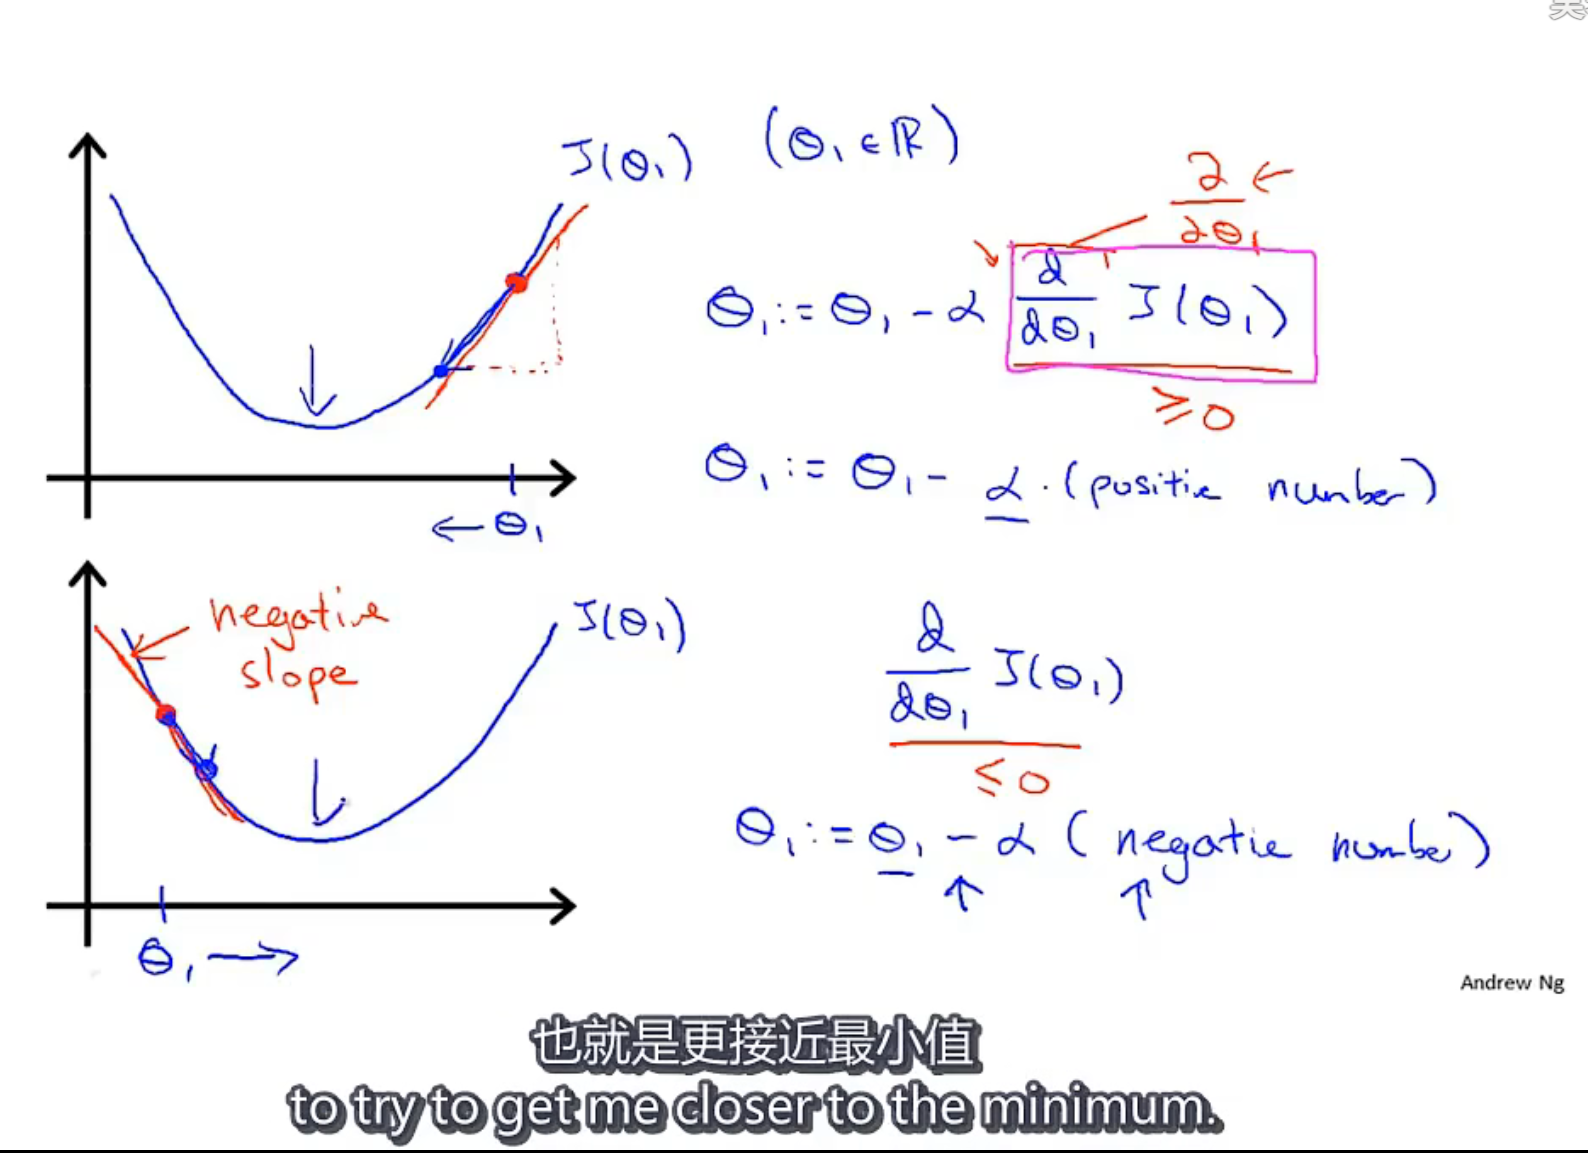 J(θ₁) (θ₁ ∈ ℝ)
∂/∂θ₁ ←
θ₁ := θ₁ - α d/dθ₁ J(θ₁)
≥ 0
θ₁ := θ₁ - α · (positive number)
← θ₁
negative
slope
J(θ₁)
d/dθ₁ J(θ₁)
≤ 0
θ₁ := θ₁ - α (negative number)
θ₁ →
Andrew Ng
也就是更接近最小值
to try to get me closer to the minimum.